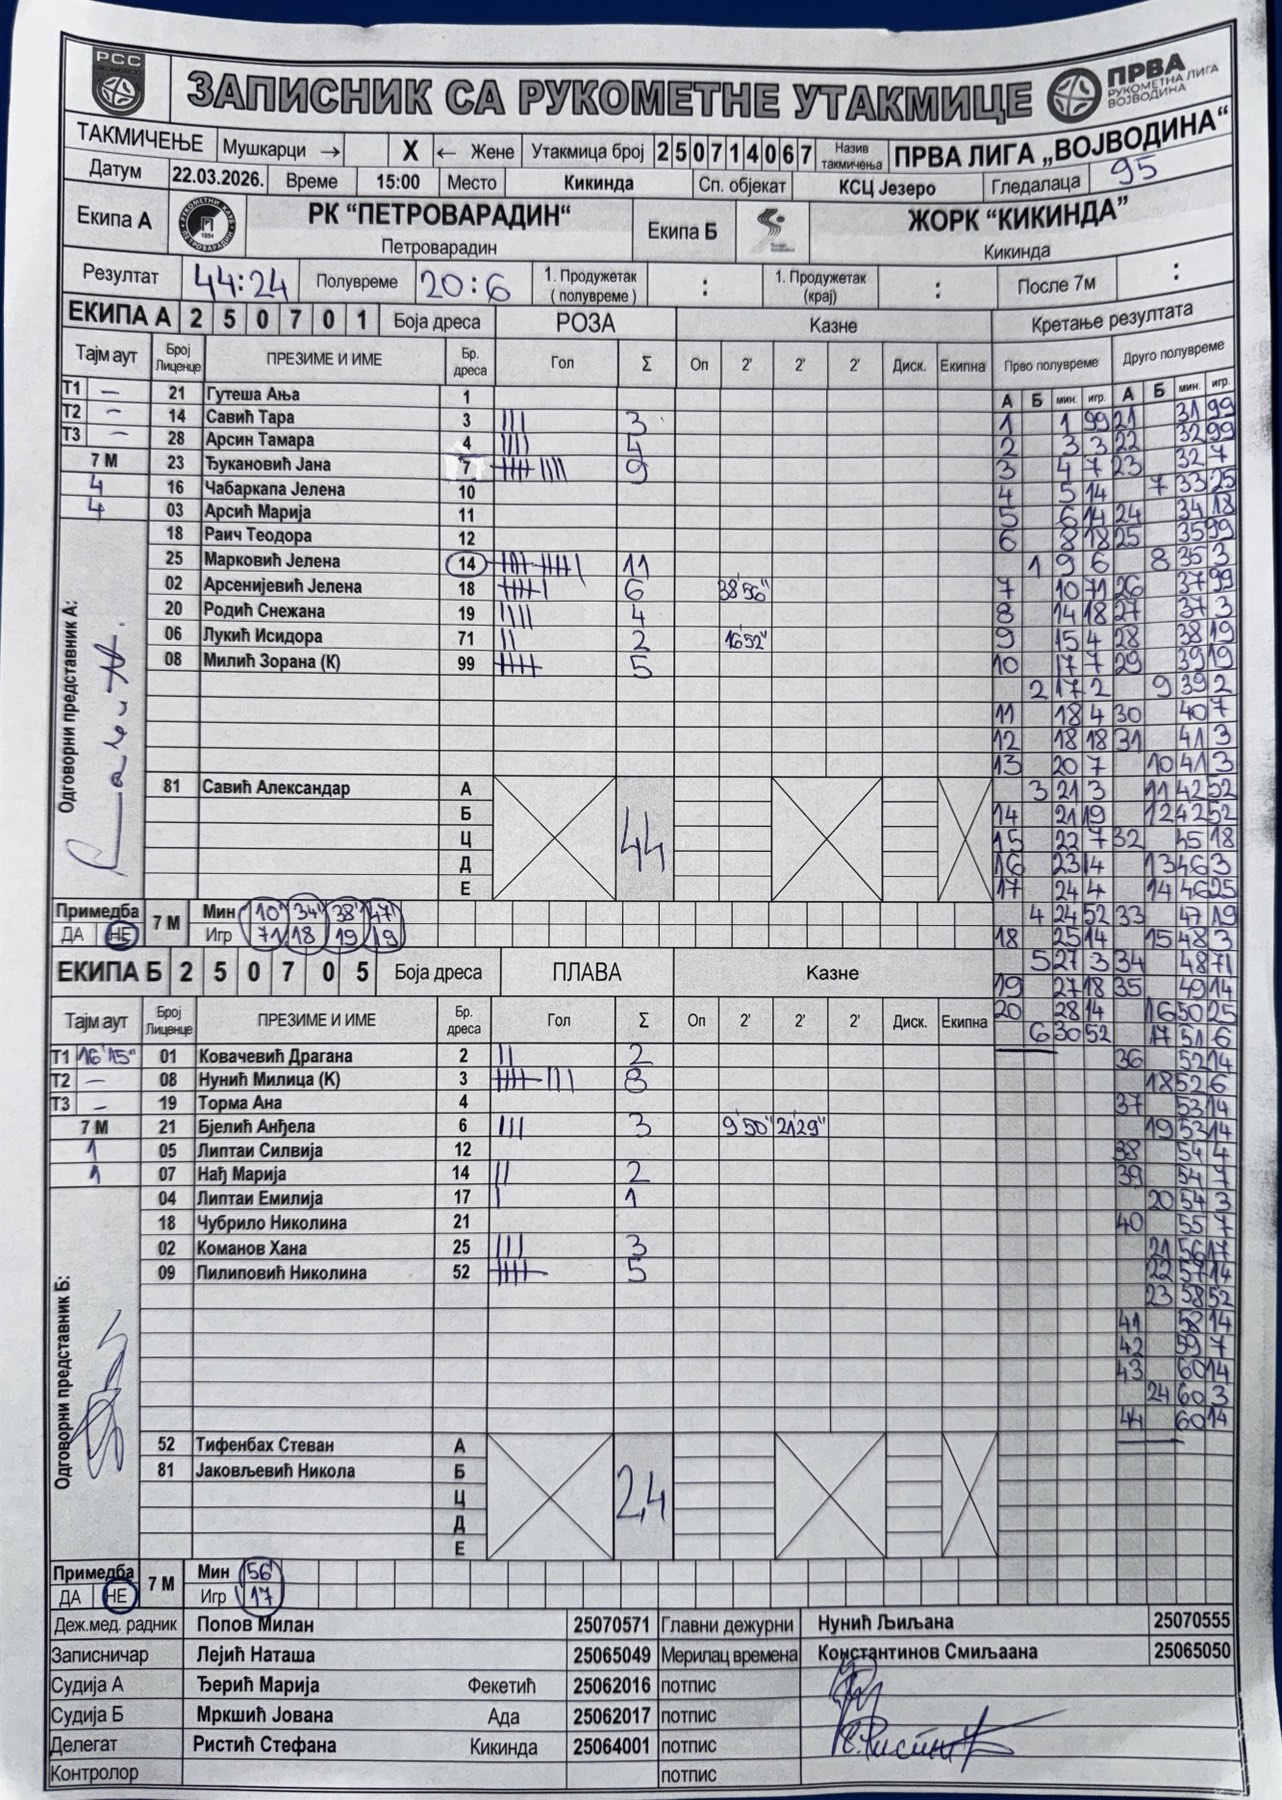 РСС
ЗАПИСНИК СА РУКОМЕТНЕ УТАКМИЦЕ
ПРВА
РУКОМЕТНА ЛИГА
ВОЈВОДИНА
ТАКМИЧЕЊЕ Мушкарци → X ← Жене Утакмица број 2 5 0 7 1 4 0 6 7 Назив такмичења ПРВА ЛИГА „ВОЈВОДИНА“
Датум 22.03.2026. Време 15:00 Место Кикинда Сп. објекат КСЦ Језеро Гледалаца 95
Екипа А РК “ПЕТРОВАРАДИН“ Екипа Б ЖОРК “КИКИНДА”
Петроварадин Кикинда
Резултат 44:24 Полувреме 20:6 1. Продужетак (полувреме) : 1. Продужетак (крај) : После 7м :
ЕКИПА А 2 5 0 7 0 1 Боја дреса РОЗА Казне Кретање резултата
Тајм аут Број Лиценце ПРЕЗИМЕ И ИМЕ Бр. дреса Гол Σ Оп 2' 2' 2' Диск. Екипна Прво полувреме Друго полувреме
А Б мин. игр. А Б мин. игр.
Т1 – 21 Гутеша Ања 1
Т2 – 14 Савић Тара 3 ||| 3
Т3 – 28 Арсин Тамара 4 |||| 4
7 М 23 Ђукановић Јана 7 9
4 16 Чабаркапа Јелена 10
4 03 Арсић Марија 11
18 Раич Теодора 12
25 Марковић Јелена 14 11
02 Арсенијевић Јелена 18 6 38'56"
20 Родић Снежана 19 |||| 4
06 Лукић Исидора 71 || 2 16'52"
08 Милић Зорана (К) 99 5
81 Савић Александар А
Б
Ц
Д
Е
44
Одговорни представник А:
1 1 99 21 31 99
2 3 3 22 32 99
3 4 7 23 32 7
4 5 14 7 33 25
5 6 14 24 34 18
6 8 18 25 35 99
1 9 6 8 35 3
7 10 71 26 37 99
8 14 18 27 37 3
9 15 4 28 38 19
10 17 7 29 39 19
2 17 2 9 39 2
11 18 4 30 40 7
12 18 18 31 41 3
13 20 7 10 41 3
3 21 3 11 42 52
14 21 19 12 42 52
15 22 7 32 45 18
16 23 14 13 46 3
17 24 4 14 46 25
4 24 52 33 47 19
18 25 14 15 48 3
5 27 3 34 48 71
19 27 18 35 49 14
20 28 14 16 50 25
6 30 52 17 51 6
36 52 14
18 52 6
37 53 14
19 53 14
38 54 4
39 54 7
20 54 3
40 55 7
21 56 17
22 57 14
23 58 52
41 58 14
42 59 7
43 60 14
24 60 3
44 60 14
Примедба 7 М Мин 10' 34' 38' 47'
ДА НЕ Игр 71 18 19 19
ЕКИПА Б 2 5 0 7 0 5 Боја дреса ПЛАВА Казне
Тајм аут Број Лиценце ПРЕЗИМЕ И ИМЕ Бр. дреса Гол Σ Оп 2' 2' 2' Диск. Екипна
Т1 16'15" 01 Ковачевић Драгана 2 || 2
Т2 – 08 Нунић Милица (К) 3 8
Т3 – 19 Торма Ана 4
7 М 21 Бјелић Анђела 6 ||| 3 9'50" 21'29"
1 05 Липтаи Силвија 12
1 07 Нађ Марија 14 || 2
04 Липтаи Емилија 17 | 1
18 Чубрило Николина 21
02 Команов Хана 25 ||| 3
09 Пилиповић Николина 52 5
52 Тифенбах Стеван А
81 Јаковљевић Никола Б
Ц
Д
Е
24
Одговорни представник Б:
Примедба 7 М Мин 56'
ДА НЕ Игр 17
Деж.мед. радник Попов Милан 25070571 Главни дежурни Нунић Љиљана 25070555
Записничар Лејић Наташа 25065049 Мерилац времена Константинов Смиљаана 25065050
Судија А Ђерић Марија Фекетић 25062016 потпис
Судија Б Мркшић Јована Ада 25062017 потпис
Делегат Ристић Стефана Кикинда 25064001 потпис
Контролор потпис